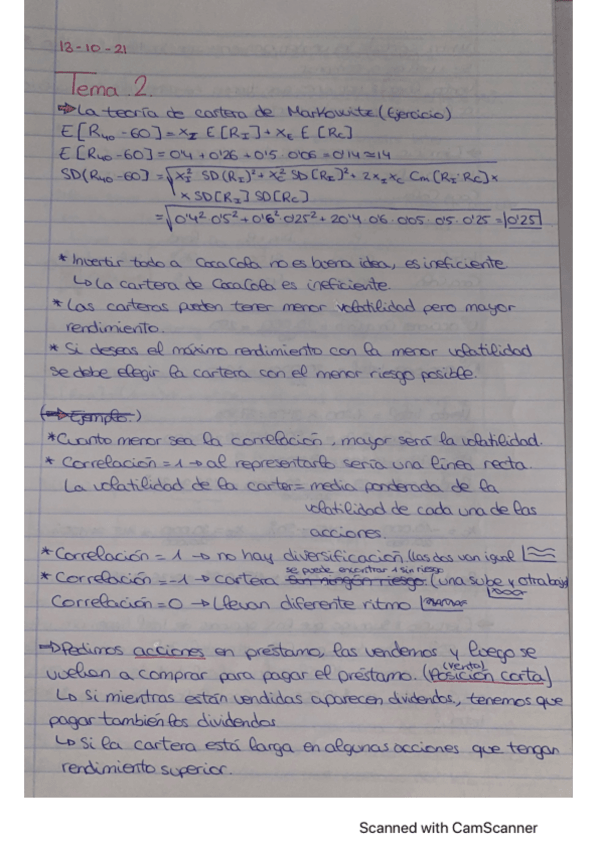 13-10-21
Tema 2.
⇒ La teoría de cartera de Markowitz (Ejercicio)
E[R40-60] = xI E[RI] + xC E[RC]
E[R40-60] = 0'4 + 0'26 + 0'5 · 0'06 = 0'14 = 14
SD(R40-60) = √xI² SD(RI)² + xC² SD[RI]² + 2xI xC Cm[RI·RC] x
x SD[RI] SD[RC]
= √0'4² 0'5² + 0'6² · 0'25² + 20'4 0'6 · 0'05 · 0'5 · 0'25 = 0'25
* Invertir todo a CocaCola no es buena idea, es ineficiente
↳ La cartera de CocaCola es ineficiente.
* Las carteras pueden tener menor volatilidad pero mayor
rendimiento.
* Si deseas el máximo rendimiento con la menor volatilidad
se debe elegir la cartera con el menor riesgo posible.
(⇒ Ejemplo.)
* Cuanto menor sea la correlación, mayor será la volatilidad.
* Correlación = 1 → al representarlo sería una línea recta.
La volatilidad de la carter = media ponderada de la
volatilidad de cada una de las
acciones.
* Correlación = 1 → no hay diversificación (las dos van igual
se puede encontrar 1 sin riesgo
* Correlación = -1 → cartera san ningún riesgo (una sube y otra baja)
Correlación = 0 → Llevan diferente ritmo
→ Pedimos acciones en préstamo, las vendemos y luego se
vuelven a comprar para pagar el préstamo. (Posición corta)
(venta)
↳ Si mientras están vendidas aparecen dividendos, tenemos que
pagar también los dividendos
↳ Si la cartera está larga en algunas acciones que tengan
rendimiento superior.
Scanned with CamScanner